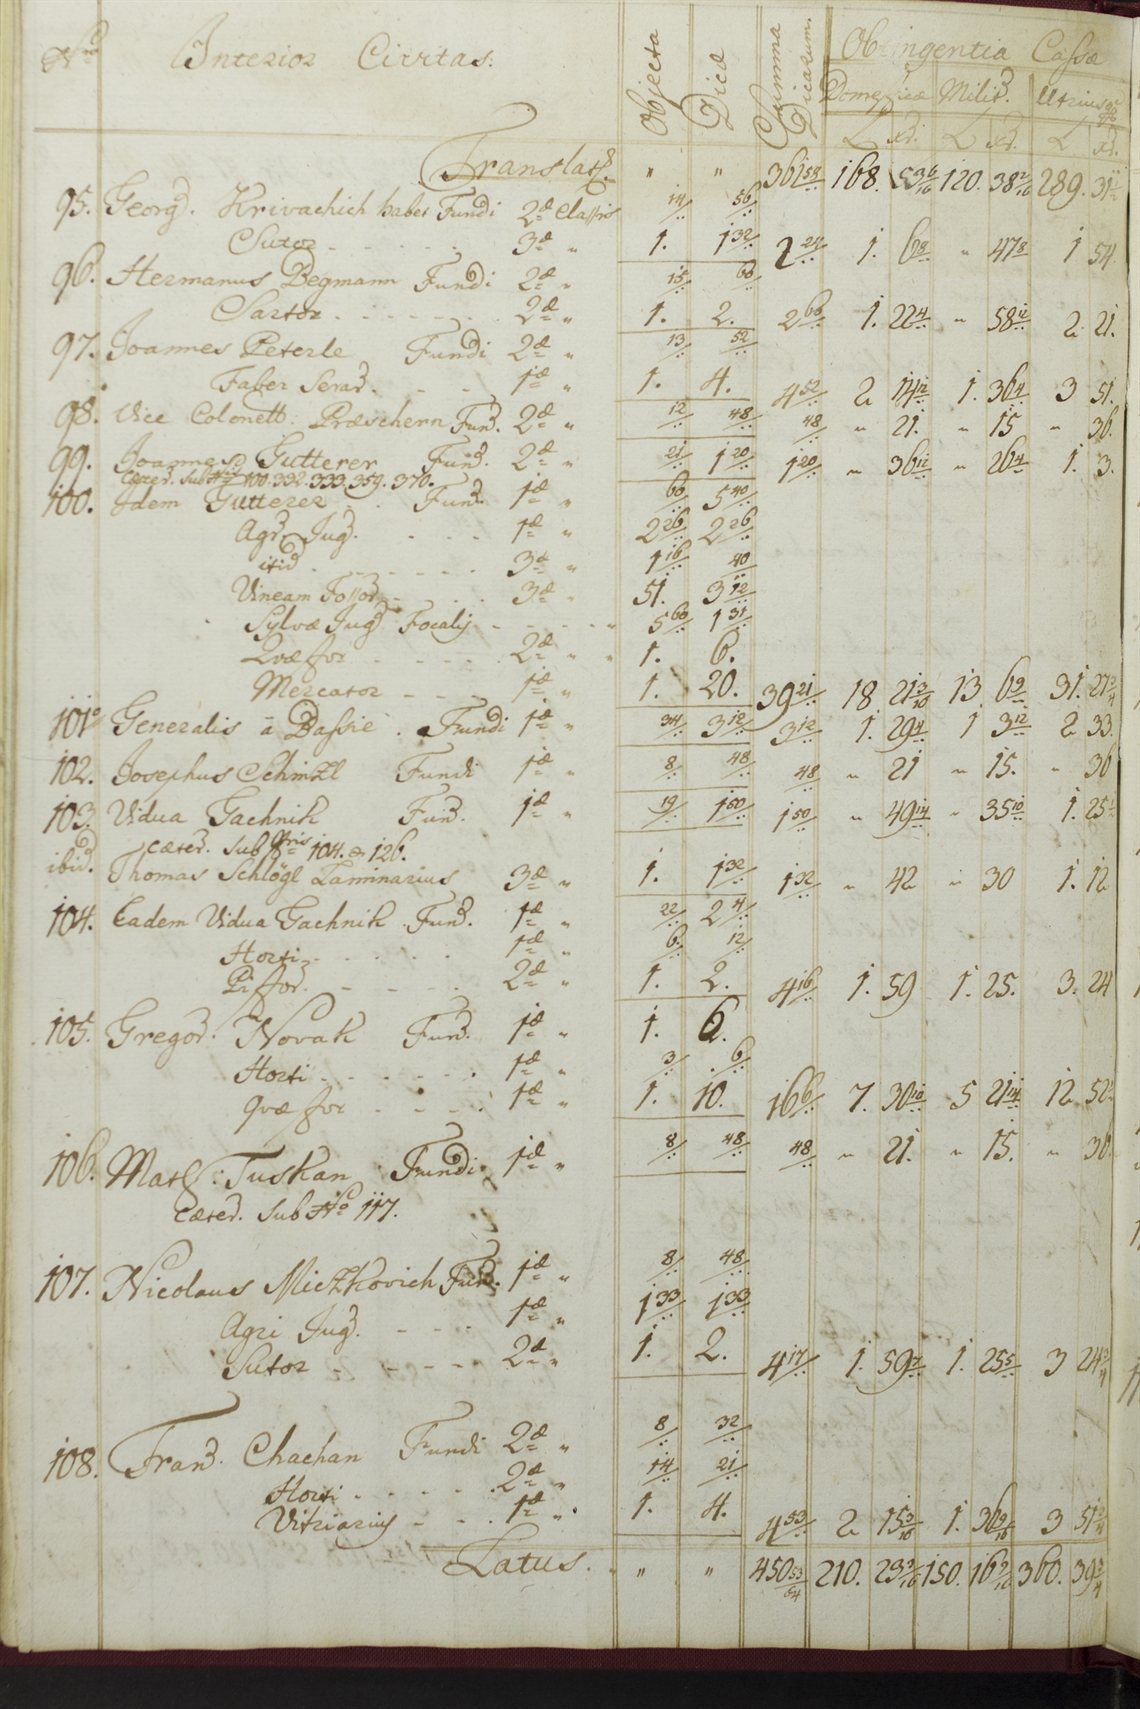 Nro Interior Civitas. Objecta Dicæ Summa Dicarum. Obtingentia Cassæ
Domesticæ Milit. Utriusque
L xr. L xr. L xr.
Translat. " " 361 58 168. 53 6/16 120. 38 2/16 289. 31
95. Georg. Krivachich habet Fundi 2dæ Classis 14 56
Sutor 3æ " 1. 1 32 2 24 1. 6 8 " 47 8 1 54.
96. Hermanus Begmann Fundi 2dæ " 15 60
Sartor 2dæ " 1. 2. 2 60 1. 22 4 " 58 12 2. 21.
97. Joannes Peterle Fundi 2dæ " 13 52
Faber Serar. 1æ " 1. 4. 4 52 2 14 12 1. 36 4 3 51.
98. Vice Colonell. Præschern Fund. 2dæ " 12 48 48 " 21. " 15 " 36.
99. Joannes Gutterer Fund. 2dæ " 21 1 20 1 20 " 36 12 " 26 4 1. 3.
Cæter. sub Nris 100. 332. 333. 359. 370.
100. Idem Gutterer Fund. 1æ " 60 5 40
Agr. Jug. 1æ " 2 26 2 26
itid. 3æ " 1 16 40
Vineam Fossor. 3æ " 51. 3 12
Sylvæ Jug. Focalis " 5 60 1 31
Quæstor 2dæ " 1. 6.
Mercator 1æ " 1. 20. 39 21 18 21 3/16 13. 6 9 31. 27 3/4
101. Generalis à Bassie Fundi 1æ " 34 3 12 3 12 1. 29 4 1 3 12 2 33.
102. Josephus Schinzl Fundi 1æ " 8 48 48 " 21 " 15. " 36
103. Vidua Gachnik Fund. 1æ " 19 1 50 1 50 " 49 14 " 35 10 1. 25
Cæter. sub Nris 104. & 126.
ibid. Thomas Schlögl Laminarius 3æ " 1. 1 32 1 32 " 42 " 30 1. 12
104. Eadem Vidua Gachnik Fund. 1æ " 22 2 4
Horti 1æ " 6. 12
Pistor. 2dæ " 1. 2. 4 16 1. 59 1. 25. 3. 24
105. Gregor. Novak Fund. 1æ " 1. 6.
Horti 1æ " 3 6
quæstor 1æ " 1. 10. 16 6 7. 30 10 5 21 14 12 52
106. Math: Tuskan Fundi 1æ " 8 48 48 " 21. " 15. " 36.
Cæter. sub Nro 117.
107. Nicolaus Miczkovich Fund. 1æ " 8 48
Agri Jug. 1æ " 1 33 1 33
Sutor 2dæ " 1. 2. 4 17 1. 59 7 1. 25 5 3 24 3/4
108. Franc. Chachan Fundi 2dæ " 8 32
Horti 2dæ " 14 21
Vitriarius 1æ " 1. 4. 4 53 2 15 3/16 1. 36 9/16 3 51 3/4
Latus. " " 450 53/64 210. 23 3/16 150. 16 9/16 360. 39 3/4